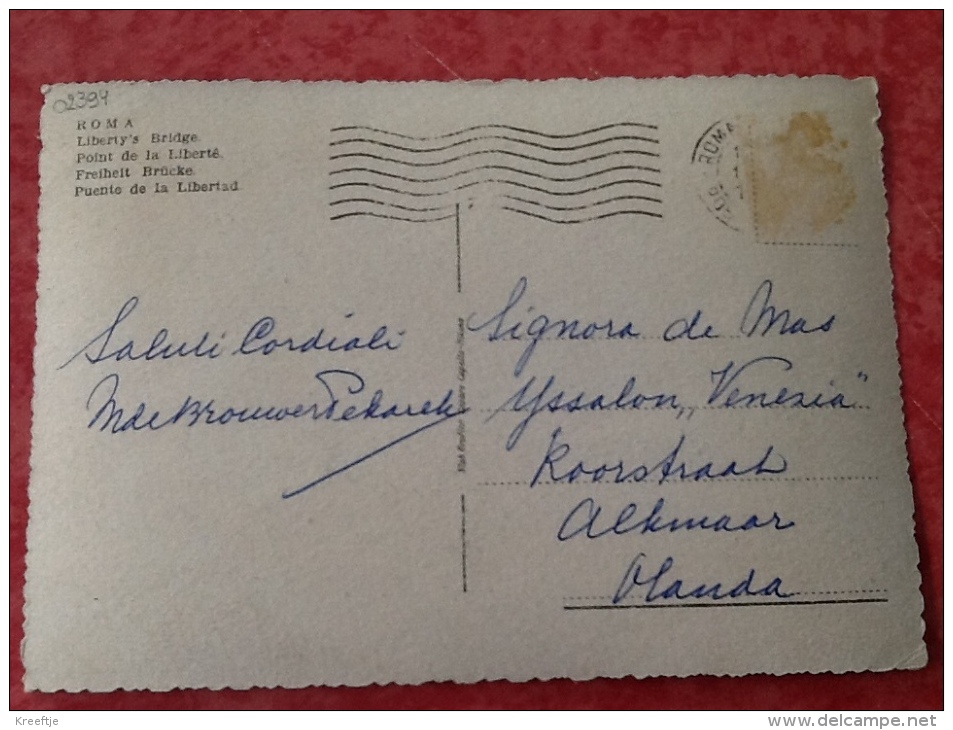 02394
ROMA
Liberty's Bridge.
Point de la Liberté.
Freiheit Brücke.
Puente de la Libertad.
ROMA
Saluti Cordiali
MdeBrouwerPekarek
Signora de Mas
Yssalon „Venezia"
Koorstraat
Alkmaar
Olanda
Kreeftje
www.delcampe.net